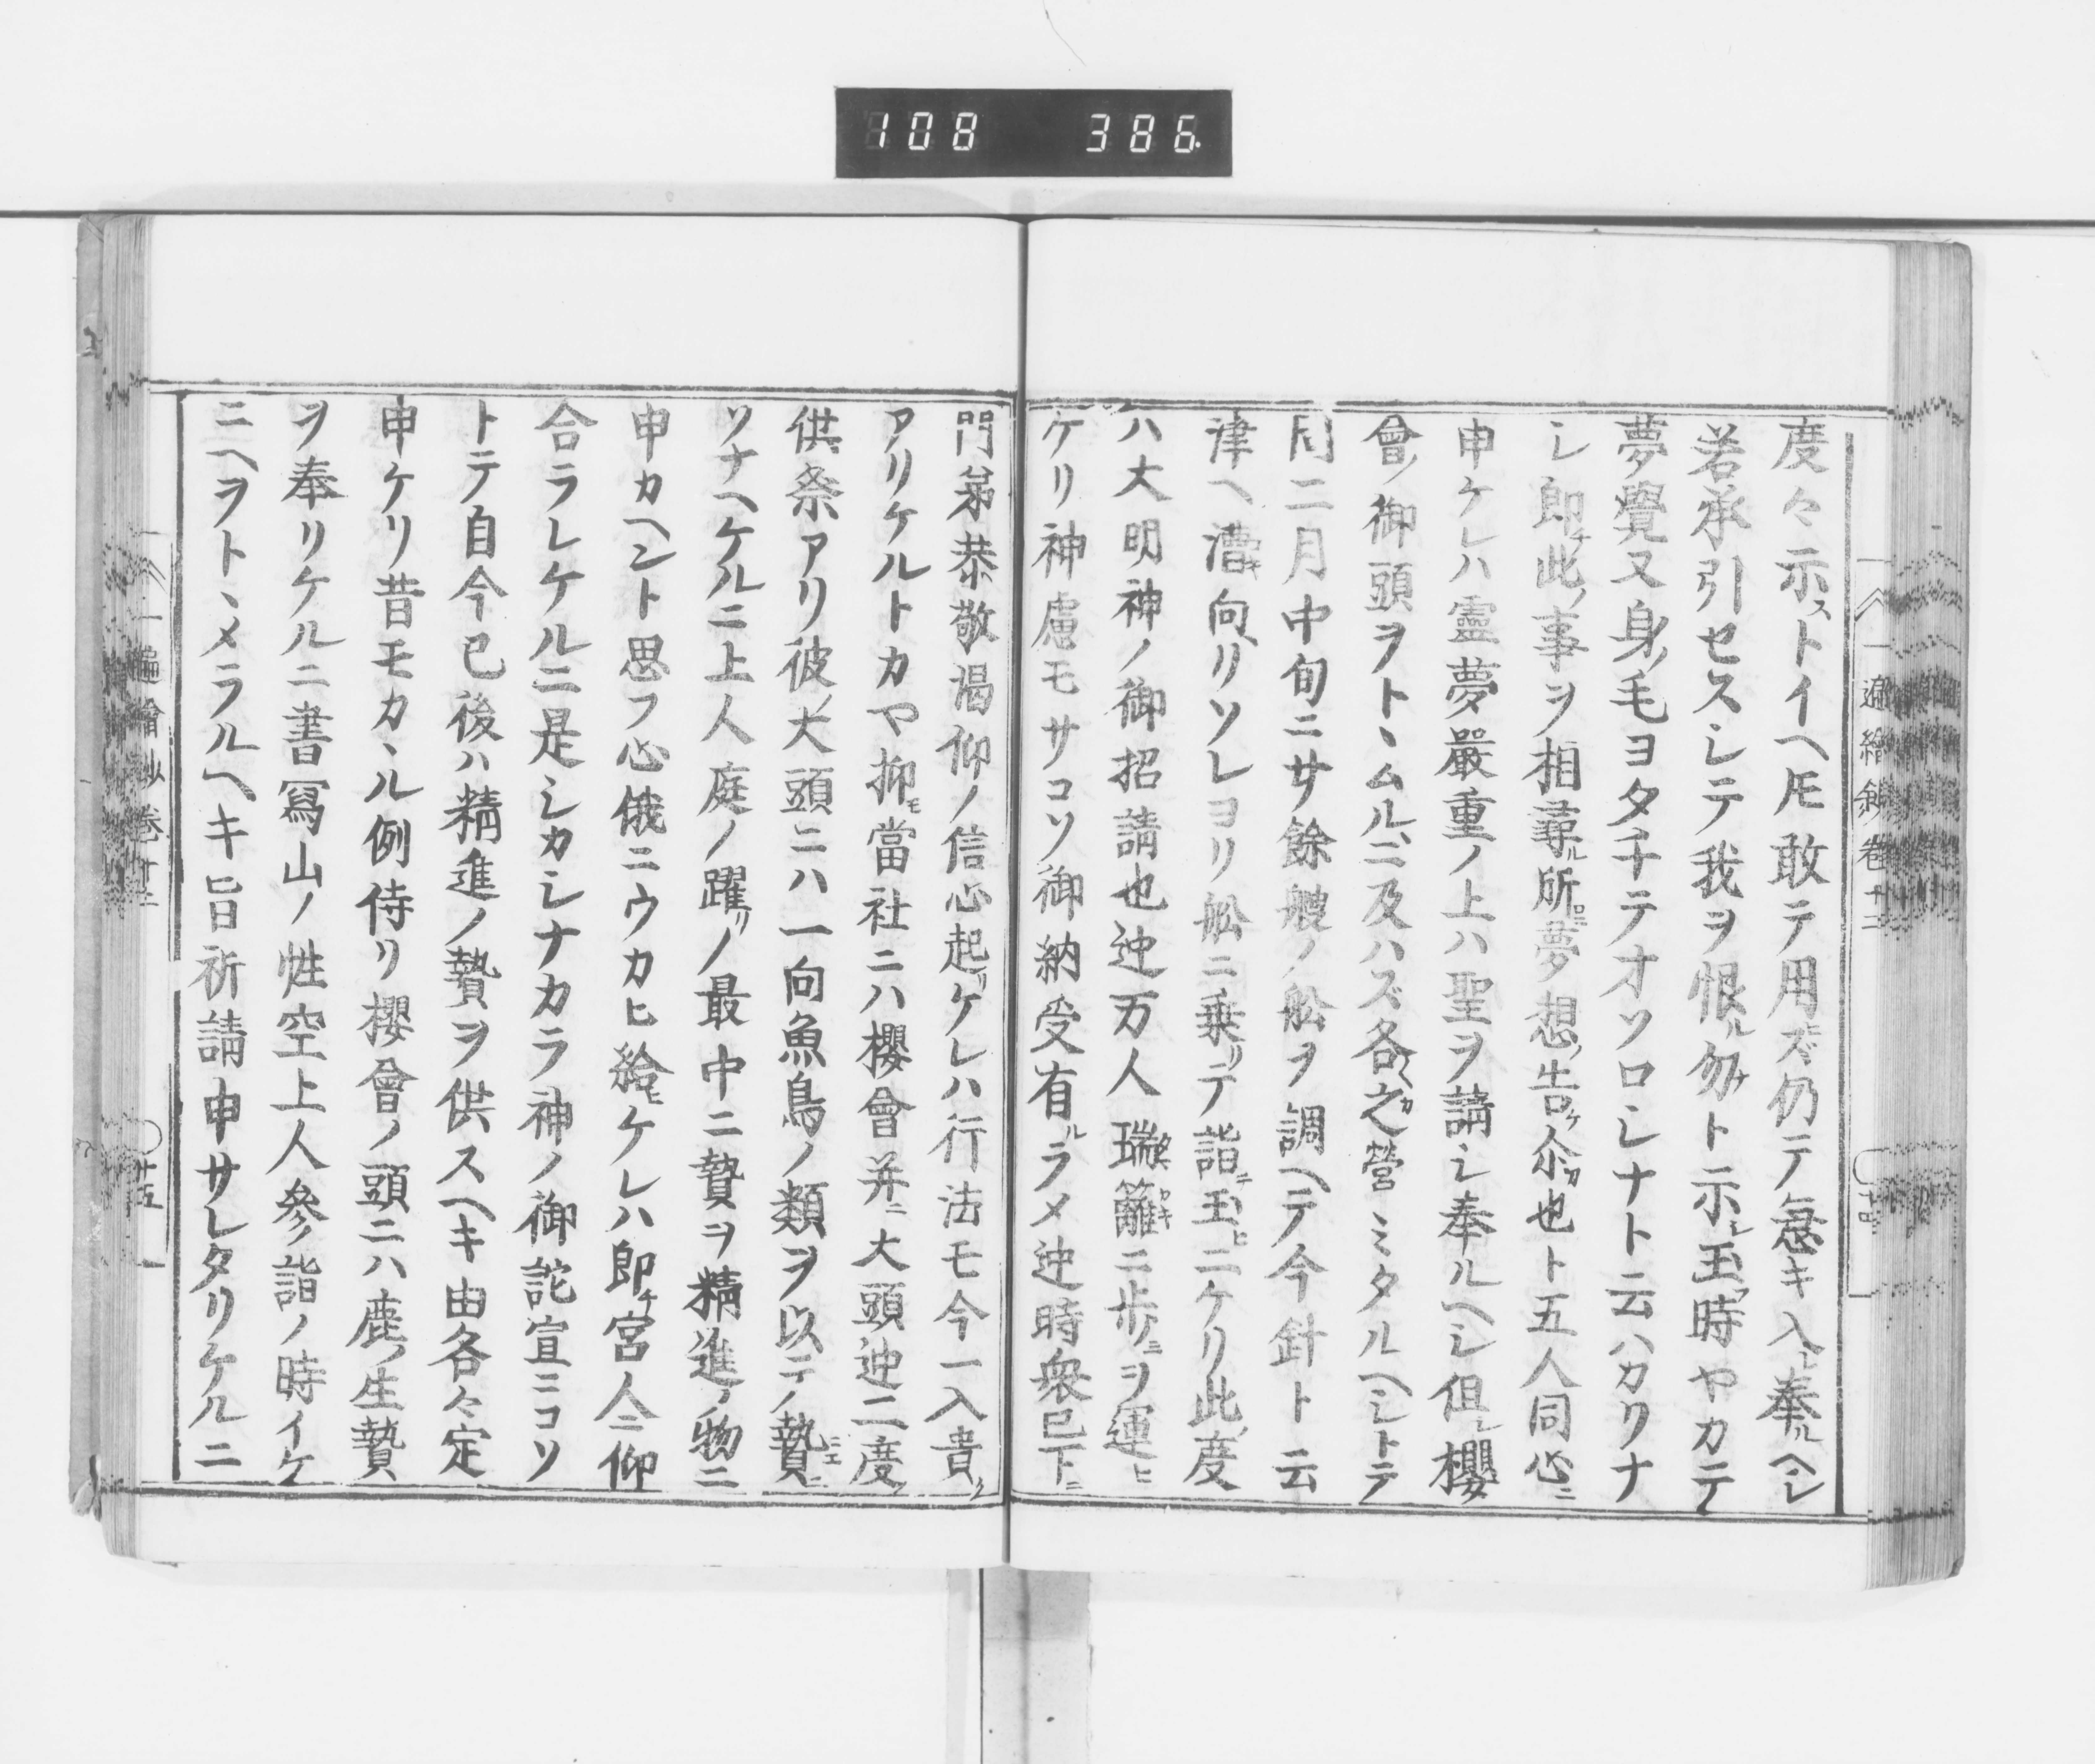 108 386
度々示ストイヘ𪜈敢テ用ズ仍テ急キ入レ奉ルヘシ
若承引セスシテ我ヲ恨ル勿ナト示シ玉フ時ヤカテ
夢覺又身ノ毛ヨタチテオソロシナト云ハカリナ
シ即チ此ノ事ヲ相尋ル所ロニ夢想ノ告ケ尒カ也ト五人同心ニ
申ケレハ靈夢嚴重ノ上ハ聖ヲ請シ奉ルヘシ但シ櫻
會ノ御頭ヲトヽムルニ及ハズ各之營ミタルヘシトテ
同二月中旬ニサ餘艘ノ舩ヲ調ヘテ今針ト云
津ヘ漕キ向ヘリソレヨリ舩ニ乗リテ詣テ玉ヒニケリ此ノ度
ハ大明神ノ御招請也迚万人瑞籬ニ歩ミヲ運ヒ
ケリ神慮モサコソ御納受有ルラメ迚時衆已下ニ
門弟恭敬渇仰ノ信心起リケレハ行法モ今一入貴ク
アリケルトカヤ抑モ當社ニハ櫻會并ニ大頭迚二度ノ
供祭アリ彼ノ大頭ニハ一向魚鳥ノ類ヲ以テノ贄ニエニ
ソナヘケルニ上人庭ノ躍リノ最中ニ贄ヲ精進ノ物ニ
申カヘント思フ心俄ニウカヒ給ヒケレハ即チ宮人ニ仰
合ラレケルニ是シカシナカラ神ノ御詫宣ニコソ
トテ自今已後ハ精進ノ贄ヲ供スヘキ由各々定
申ケリ昔モカヽル例侍リ櫻會ノ頭ニハ鹿ノ生贄
ヲ奉リケルニ書寫山ノ性空上人參詣ノ時イケ
ニヘヲトヽメラルヘキ旨祈請申サレタリケルニ
一遍繪鈔卷十二
廿五